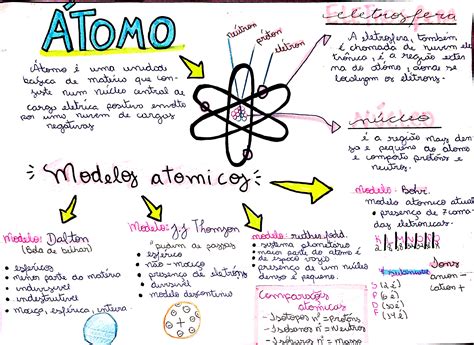 ÁTOMO
Átomo é uma unidade
básica de matéria que con-
siste num núcleo central de
carga elétrica positiva envolto
por uma nuvem de cargas
negativas
nêutron
próton
elétron
eletrosfera
A eletrosfera, também
é chamada de nuvem ele-
trônica, é a região exter
na do átomo, aonde se
localizam os elétrons.
núcleo
é a região mais den
sa e pequeno do átomo
e comporta prótons e
neutros.
Modelos atomicos
Modelo: Dalton
(Bola de bilhar)
esféricos
menor parte da matéria
indivisível
indestrutível
maciço, esférico, inteira
Modelo: J.J Thomson
"pudim de passas"
esférico
não-maciço
presença de elétrons
divisível
modelo descontínuo
modelo:
sistema planetario
maior parte do átomo é
de espaço vazio
presença de um núcleo
denso e pequeno.
Comparações
atomicas
Isótopos nº = Prótons
Isóbaros nº = Neutros
nº = Massa
Modelo: Bohr
modelo atomico atual
presença de 7 cama
das eletronicas.
S (2 é)
P (6 é)
D (10 é)
F (14 é)
Ions
anion -
cation +